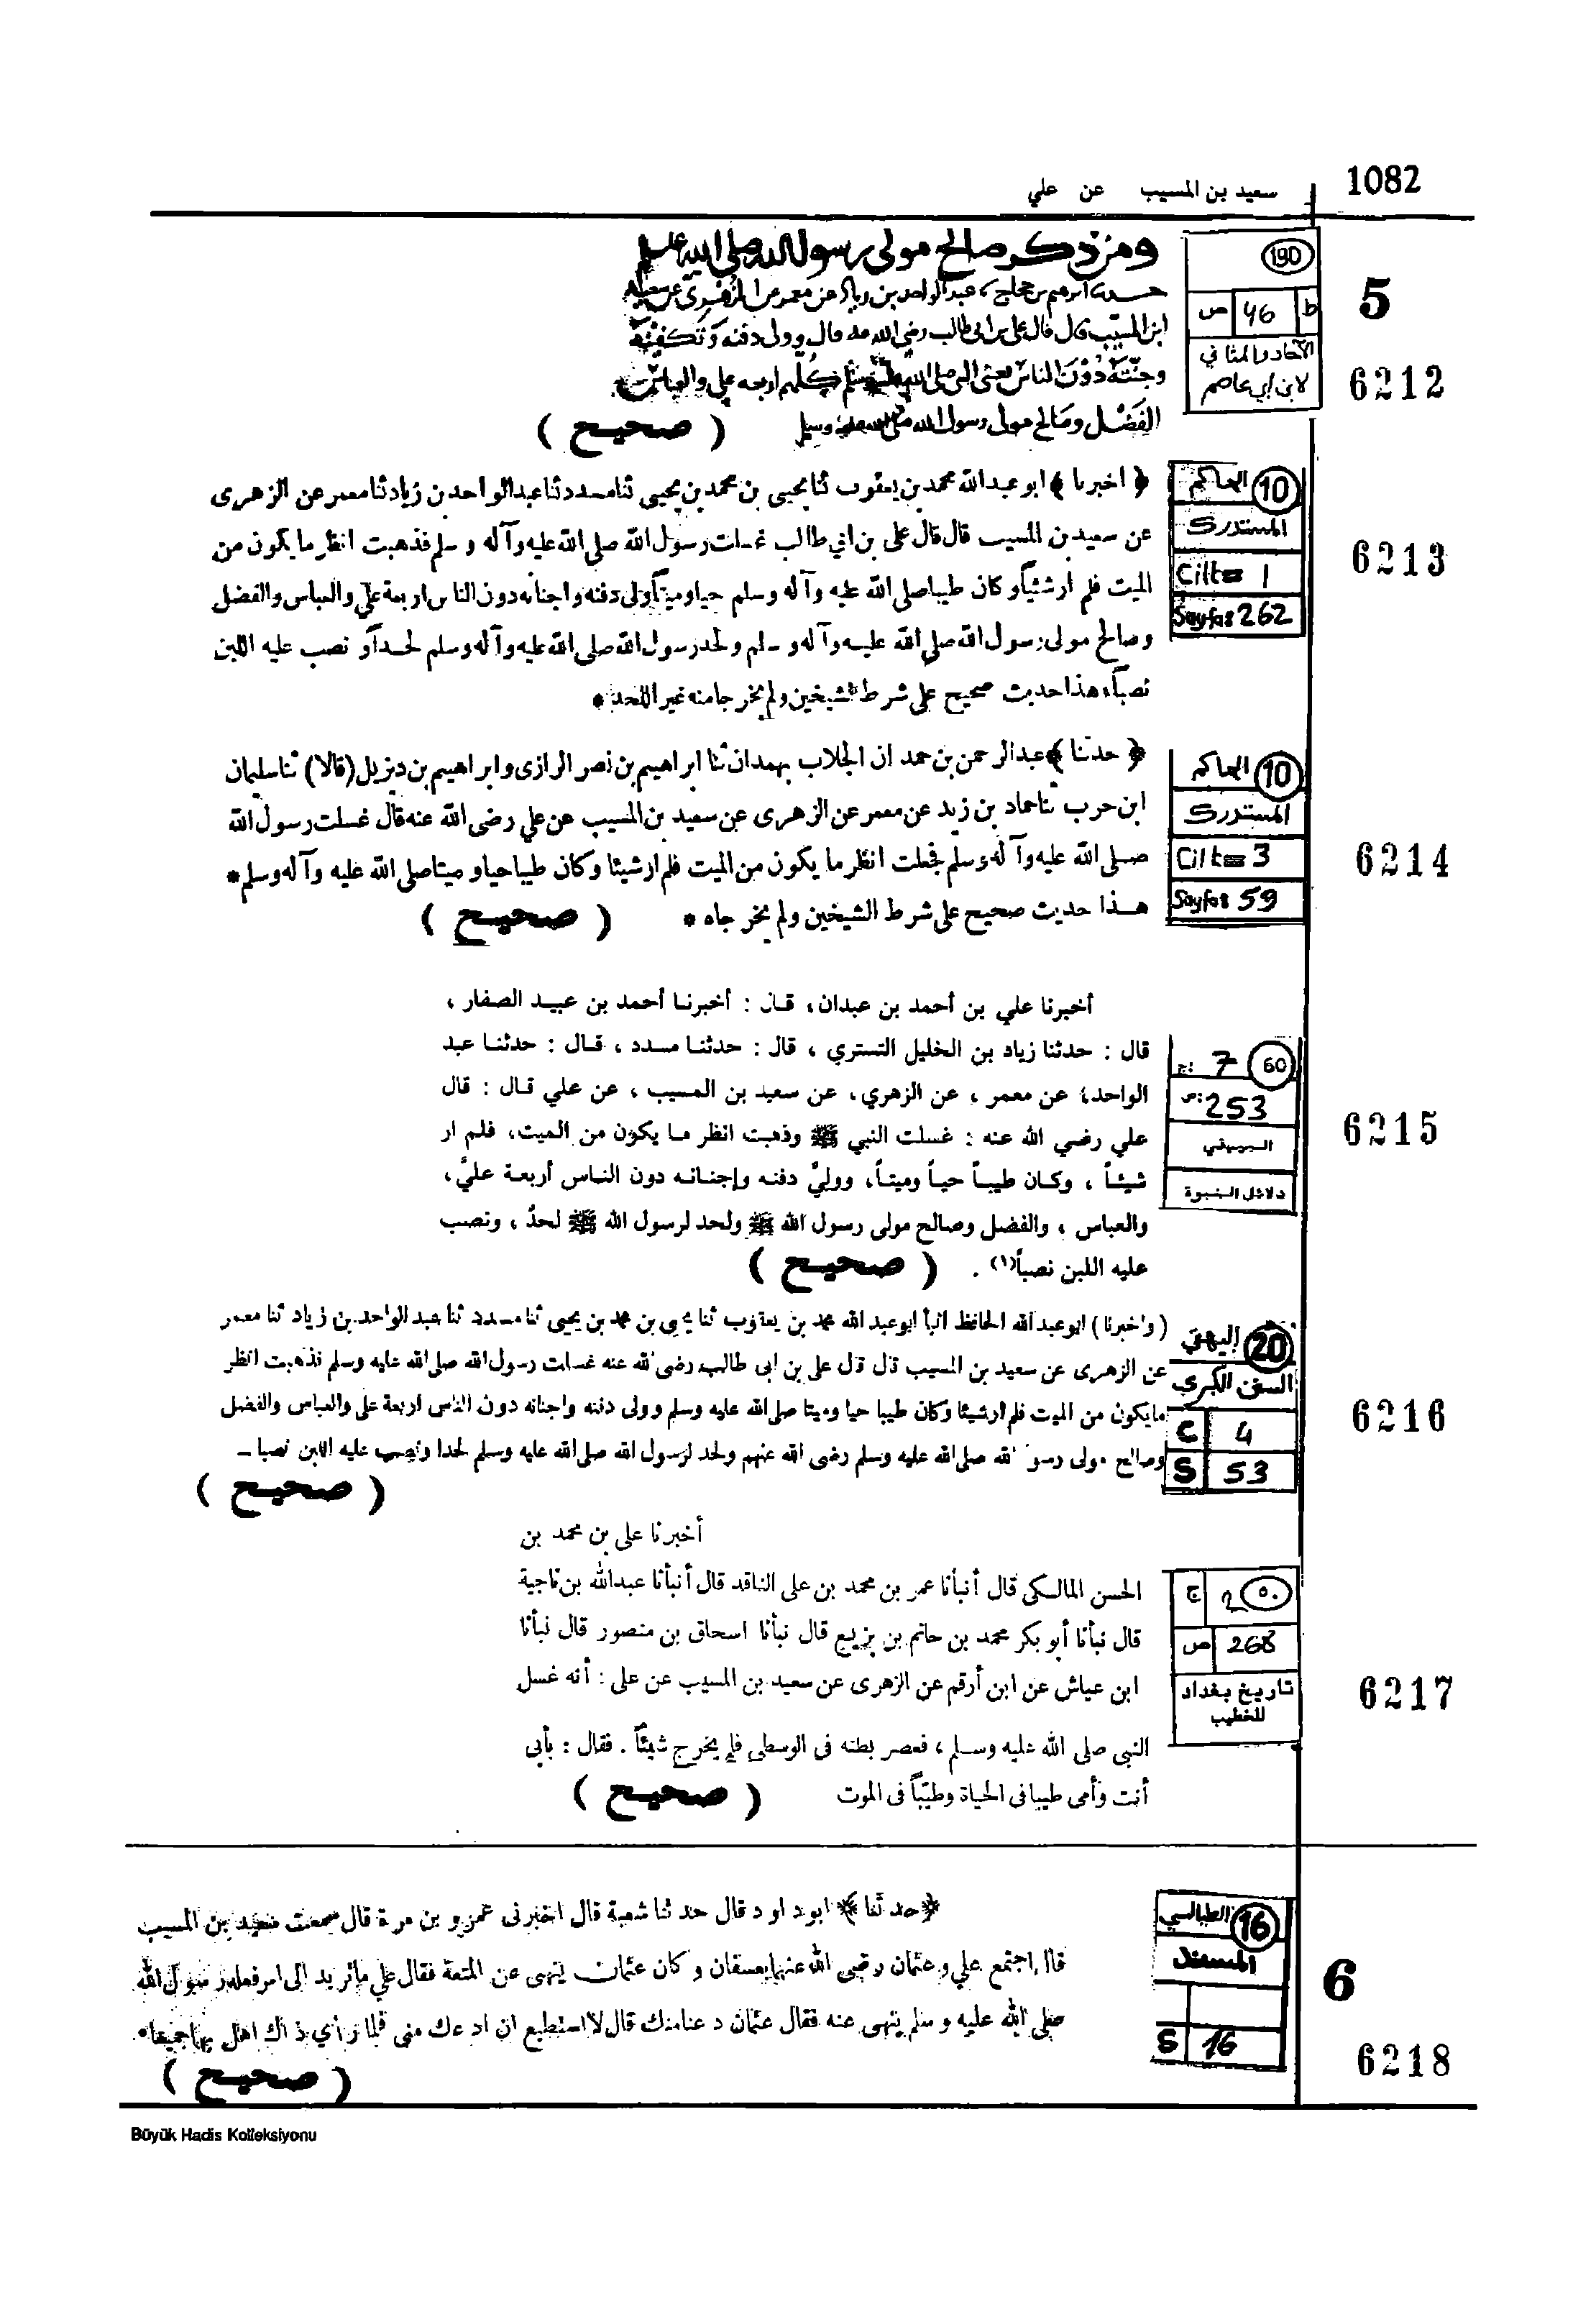 1082
سعيد بن المسيب عن علي
ومن ذكر صالح مولى رسول الله صلى الله عليه وسلم
190
46 ص
الآحاد والمثاني
لابن أبي عاصم
5
6212
حدثنا ابرهيم بن حجاج عبد الواحد بن زياد عن معمر عن الزهري عن سعيد
ابن المسيب قال قال علي بن ابي طالب رضي الله عنه قال وولى دفنه وتكفينه
وجنته دون الناس يعني النبي صلى الله عليه وسلم كلهم اربعه علي والعباس
الفضل وصالح مولى رسول الله صلى الله عليه وسلم ( صحيح )
10 الحاكم
المستدرك
Cilt= 1
Sayfa: 262
6213
﴿ اخبرنا ﴾ ابو عبد الله محمد بن يعقوب ثنا يحيى بن محمد بن يحيى ثنا مسدد ثنا عبد الواحد بن زياد ثنا معمر عن الزهرى
عن سعيد بن المسيب قال قال على بن ابي طالب غسلت رسول الله صلى الله عليه وآله وسلم فذهبت انظر ما يكون من
الميت فلم ارشيئاً وكان طيبا صلى الله عليه وآله وسلم حيا وميتاً ولى دفنه واجنانه دون الناس اربعة علي والعباس والفضل
وصالح مولى رسول الله صلى الله عليه وآله وسلم ولحد رسول الله صلى الله عليه وآله وسلم لحداً و نصب عليه اللبن
نصباً هذا حديث صحيح على شرط الشيخين ولم يخرجا منه غير اللحد *
10 الحاكم
المستدرك
Cilt= 3
Sayfa 59
6214
﴿ حدثنا ﴾ عبد الرحمن بن حمد ان الجلاب بهمدان ثنا ابراهيم بن نصر الرازى وابراهيم بن ديزيل (قالا) ثنا سليمان
ابن حرب ثنا حماد بن زيد عن معمر عن الزهرى عن سعيد بن المسيب عن علي رضى الله عنه قال غسلت رسول الله
صلى الله عليه وآله وسلم فجعلت انظر ما يكون من الميت فلم ارشيئا وكان طيبا حيا و ميتا صلى الله عليه وآله وسلم *
هذا حديث صحيح على شرط الشيخين ولم يخرجاه * ( صحيح )
60 7 ج:
ص: 253
البيهقي
دلائل النبوة
6215
أخبرنا علي بن أحمد بن عبدان، قال : أخبرنا أحمد بن عبيد الصفار ،
قال : حدثنا زياد بن الخليل التستري ، قال : حدثنا مسدد ، قال : حدثنا عبد
الواحد؛ عن معمر ، عن الزهري، عن سعيد بن المسيب ، عن علي قال : قال
علي رضي الله عنه : غسلت النبي ﷺ وذهبت انظر ما يكون من الميت، فلم ار
شيئاً ، وكان طيباً حياً وميتاً، ووليُ دفنه وإجنانه دون الناس أربعة عليٌ،
والعباس ، والفضل وصالح مولى رسول الله ﷺ ولحد لرسول الله ﷺ لحدٌ ، ونصب
عليه اللبن نصباً(١) . ( صحيح )
20 البيهقي
السنن الكبرى
C 4
S 53
6216
( واخبرنا ) ابو عبد الله الحافظ انبأ ابو عبد الله محمد بن يعقوب ثنا يحيى بن محمد بن يحيى ثنا مسدد ثنا عبد الواحد بن زياد ثنا معمر
عن الزهرى عن سعيد بن المسيب قال قال على بن ابى طالب رضى الله عنه غسلت رسول الله صلى الله عليه وسلم فذهبت انظر
ما يكون من الميت فلم ارشيئا وكان طيبا حيا وميتا صلى الله عليه وسلم وولى دفنه واجنانه دون الناس اربعة على والعباس والفضل
وصالح مولى رسول الله صلى الله عليه وسلم رضى الله عنهم ولحد لرسول الله صلى الله عليه وسلم لحدا ونصب عليه اللبن نصبا ـ
( صحيح )
٥٠ 2 ج
268 ص
تاريخ بغداد
للخطيب
6217
أخبرنا على بن محمد بن
الحسن المالكى قال أنبأنا عمر بن محمد بن على الناقد قال أنبأنا عبد الله بن ناجية
قال نبأنا أبو بكر محمد بن حاتم بن بزيع قال نبأنا اسحاق بن منصور قال نبأنا
ابن عياش عن ابن أرقم عن الزهرى عن سعيد بن المسيب عن على : أنه غسل
النبى صلى الله عليه وسلم ، فعصر بطنه فى الوسطى فلم يخرج شيئاً . فقال : بأبى
أنت وأمى طيبا فى الحياة وطيّباً فى الموت ( صحيح )
16 الطيالسي
المسند
S 16
6
6218
﴿حدثنا﴾ ابو داود قال حدثنا شعبة قال اخبرنى عمرو بن مرة قال سمعت سعيد بن المسيب
قال اجتمع علي وعثمان رضى الله عنهما بعسفان وكان عثمان ينهى عن المتعة فقال علي ما تريد الى امر فعله رسول الله
صلى الله عليه وسلم ينهى عنه فقال عثمان دعنا منك قال لا استطيع ان ادعك منى فلما رأى ذاك اهل بهما جميعا*
( صحيح )
Büyük Hadis Kolleksiyonu